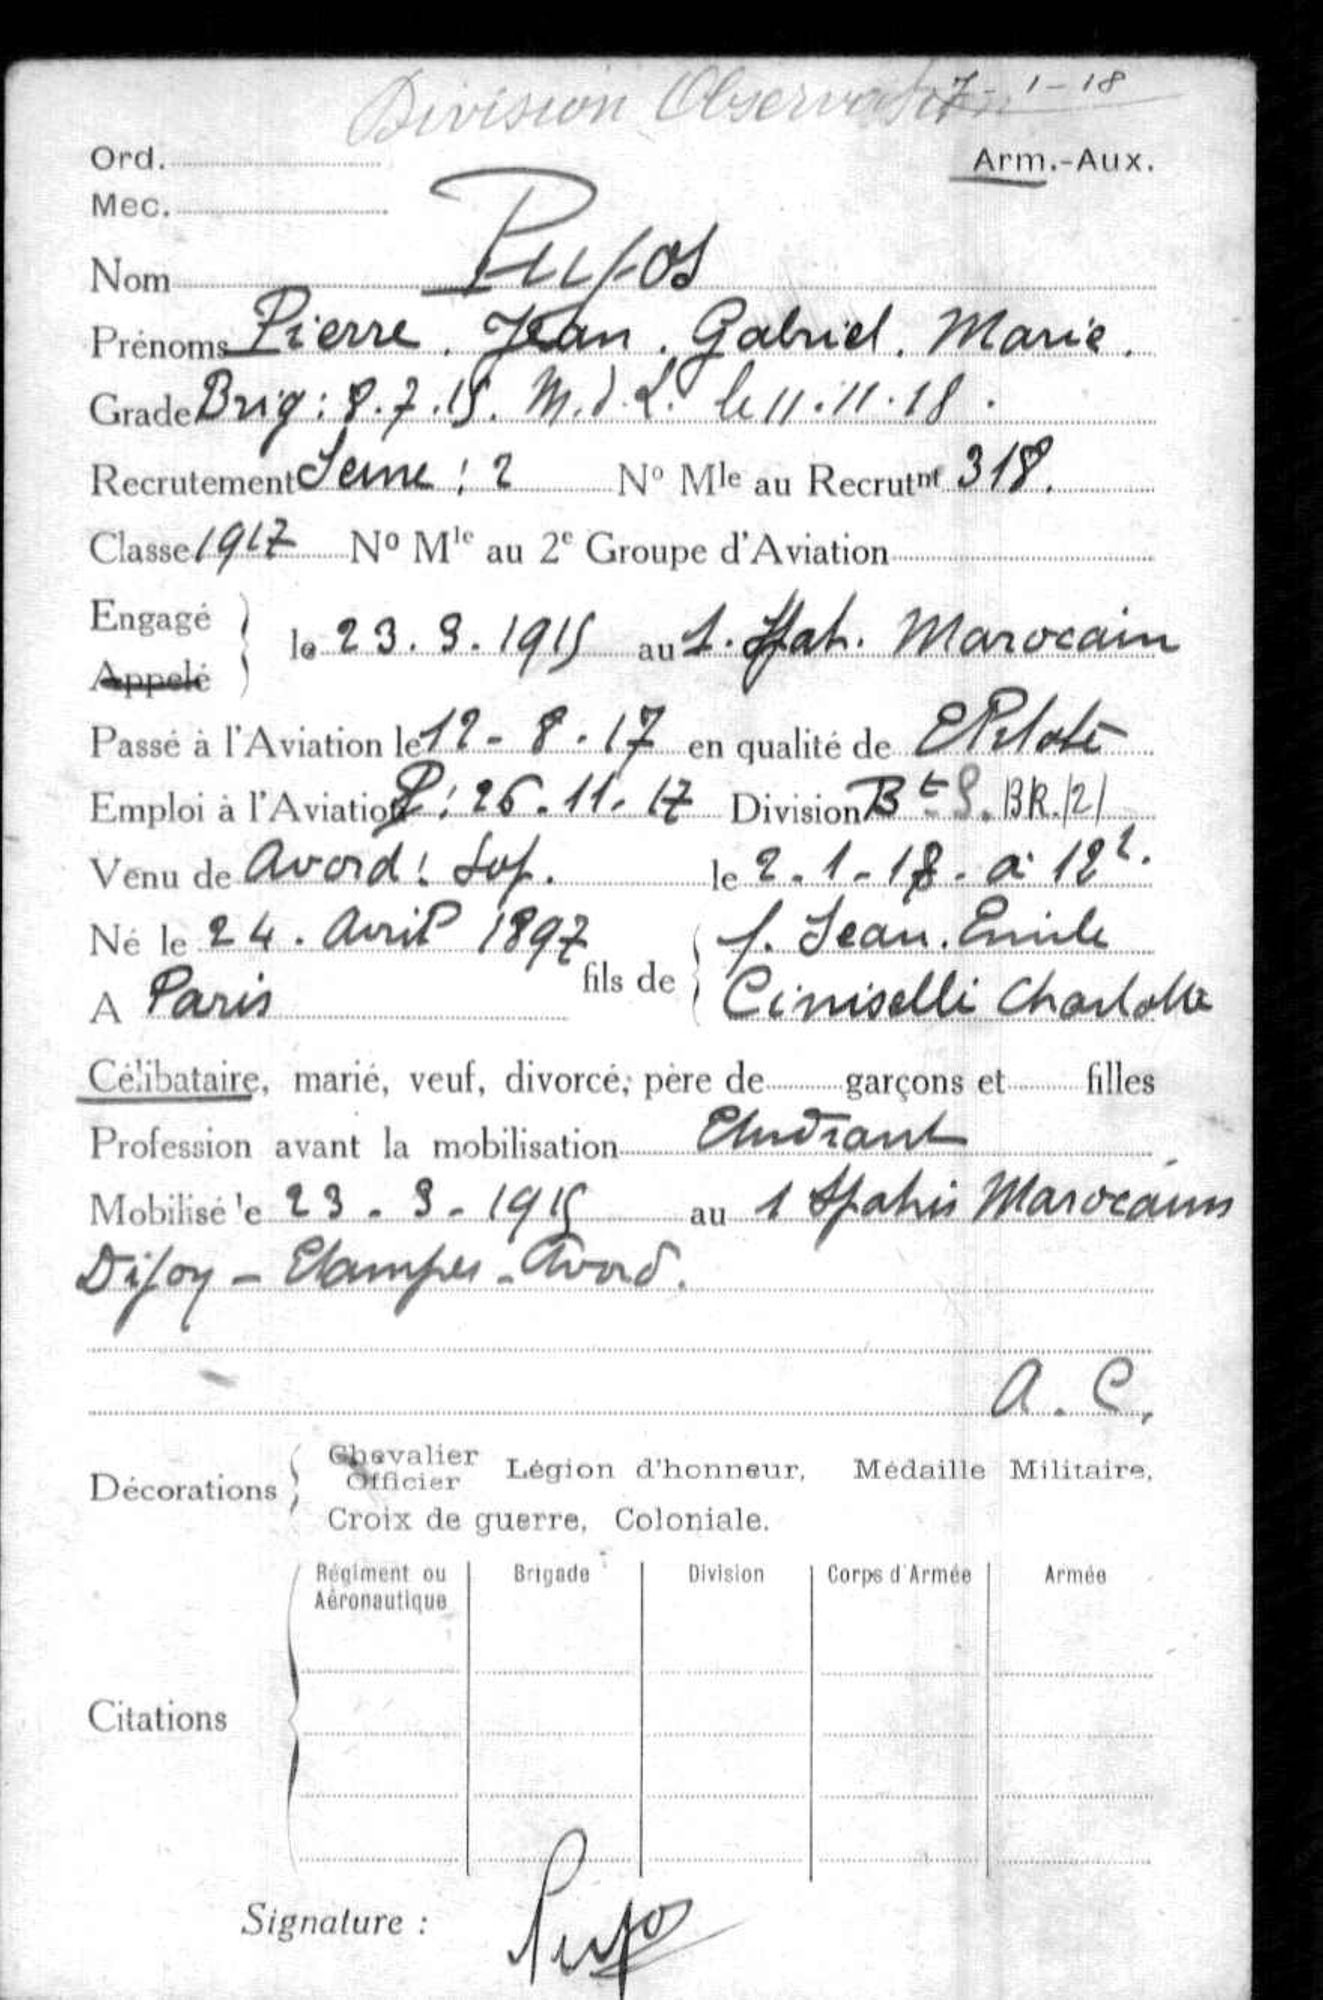 Division Observation 7-1-18
Ord.
Arm.-Aux.
Mec.
Nom Pujos
Prénoms Pierre. Jean. Gabriel. Marie.
Grade Brig: 8.7.15. M.d.L. le 11.11.18.
Recrutement Seine: 2 No Mle au Recrutnt 318.
Classe 1917 No Mle au 2e Groupe d'Aviation
Engagé
Appelé
le 23.3.1915 au 1. Spah. Marocain
Passé à l'Aviation le 12-8.17 en qualité de EPilote
Emploi à l'Aviation P: 26.11.17 Division Bt S. BR.121
Venu de Avord: Sop. le 2-1-18. à
Né le 24. Avril 1897
A Paris
fils de f. Jean. Emile
Ciniselli Charlotte
Célibataire, marié, veuf, divorcé, père de garçons et filles
Profession avant la mobilisation Etudiant
Mobilisé le 23-3-1915 au 1 Spahis Marocains
Dijon - Etampes - Avord.
A. C.
Décorations
Chevalier
Officier
Légion d'honneur, Médaille Militaire,
Croix de guerre, Coloniale.
Citations
Régiment ou Aéronautique
Brigade
Division
Corps d'Armée
Armée
Signature :
Pujos